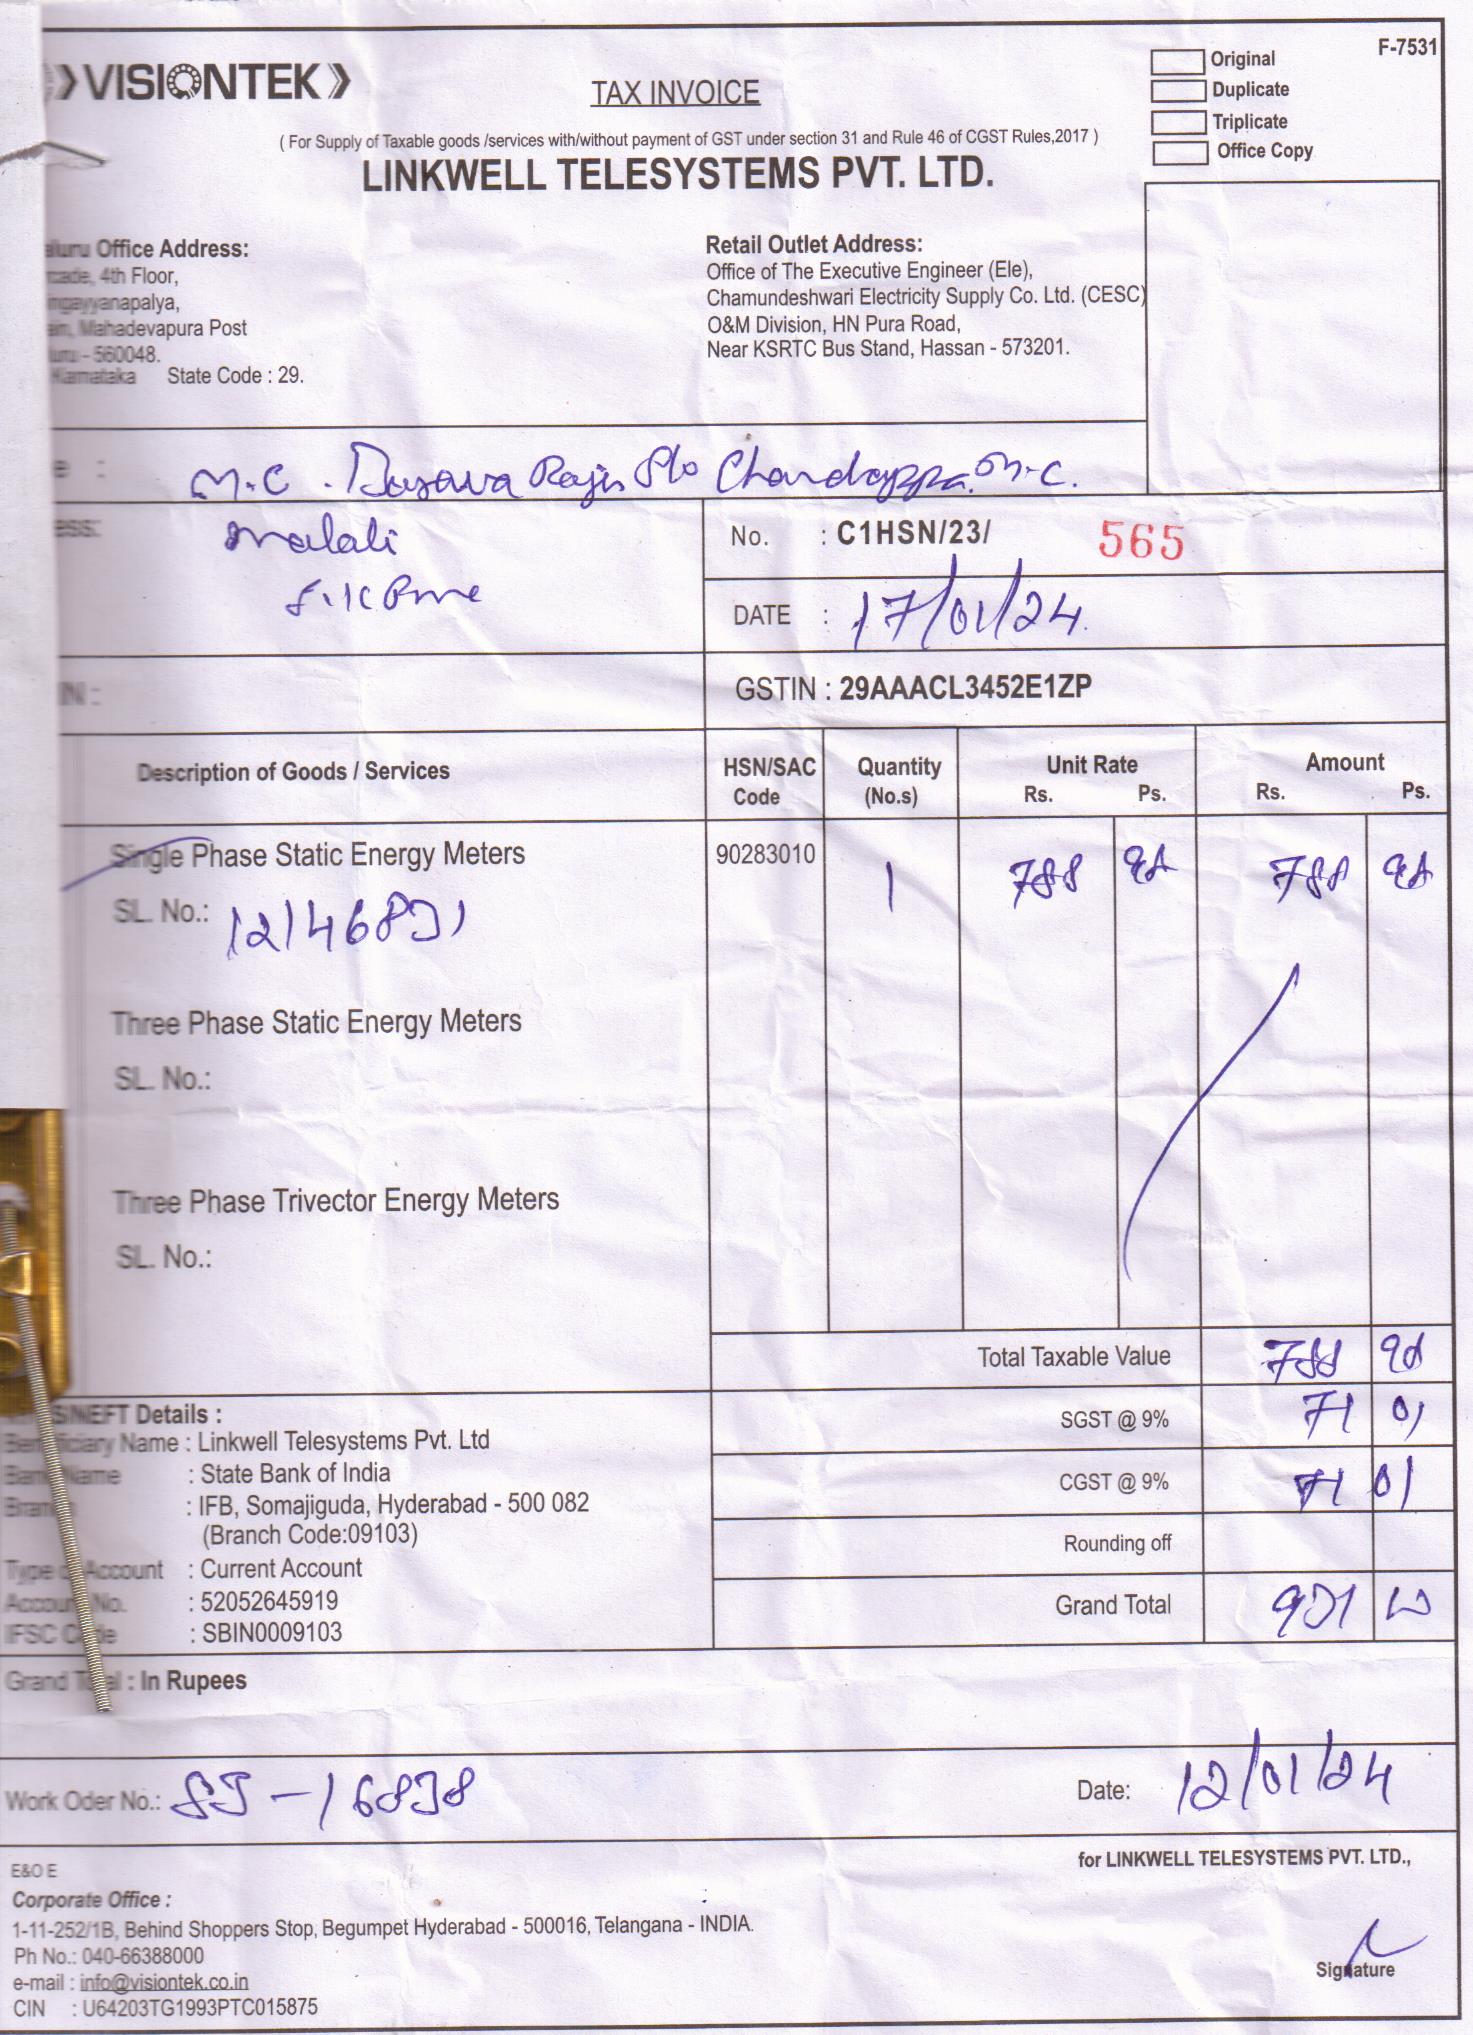 VISIONTEK
TAX INVOICE
F-7531
Original
Duplicate
Triplicate
Office Copy
( For Supply of Taxable goods /services with/without payment of GST under section 31 and Rule 46 of CGST Rules,2017 )
LINKWELL TELESYSTEMS PVT. LTD.
Office Address:
4th Floor,
Mahadevapura Post
- 560048.
Karnataka State Code : 29.
Retail Outlet Address:
Office of The Executive Engineer (Ele),
Chamundeshwari Electricity Supply Co. Ltd. (CESC)
O&M Division, HN Pura Road,
Near KSRTC Bus Stand, Hassan - 573201.
M.C. Basava Raju S/o Chandrappa M.C.
Malali
No. : C1HSN/23/ 565
DATE : 17/01/24
GSTIN : 29AAACL3452E1ZP
Description of Goods / Services
HSN/SAC Code
Quantity (No.s)
Unit Rate
Rs. Ps.
Amount
Rs. Ps.
Single Phase Static Energy Meters 90283010 1 788 98 788 98
SL. No.:
Three Phase Static Energy Meters
SL. No.:
Three Phase Trivector Energy Meters
SL. No.:
Total Taxable Value 788 98
SGST @ 9% 71 01
CGST @ 9% 71 01
Rounding off
Grand Total 931 00
/NEFT Details :
Beneficiary Name : Linkwell Telesystems Pvt. Ltd
Bank Name : State Bank of India
Branch : IFB, Somajiguda, Hyderabad - 500 082
(Branch Code:09103)
Type of Account : Current Account
Account No. : 52052645919
IFSC Code : SBIN0009103
Grand Total : In Rupees
Work Oder No.:
Date: 12/01/24
E&O E
for LINKWELL TELESYSTEMS PVT. LTD.,
Corporate Office :
1-11-252/1B, Behind Shoppers Stop, Begumpet Hyderabad - 500016, Telangana - INDIA.
Ph No.: 040-66388000
e-mail : info@visiontek.co.in
CIN : U64203TG1993PTC015875
Signature